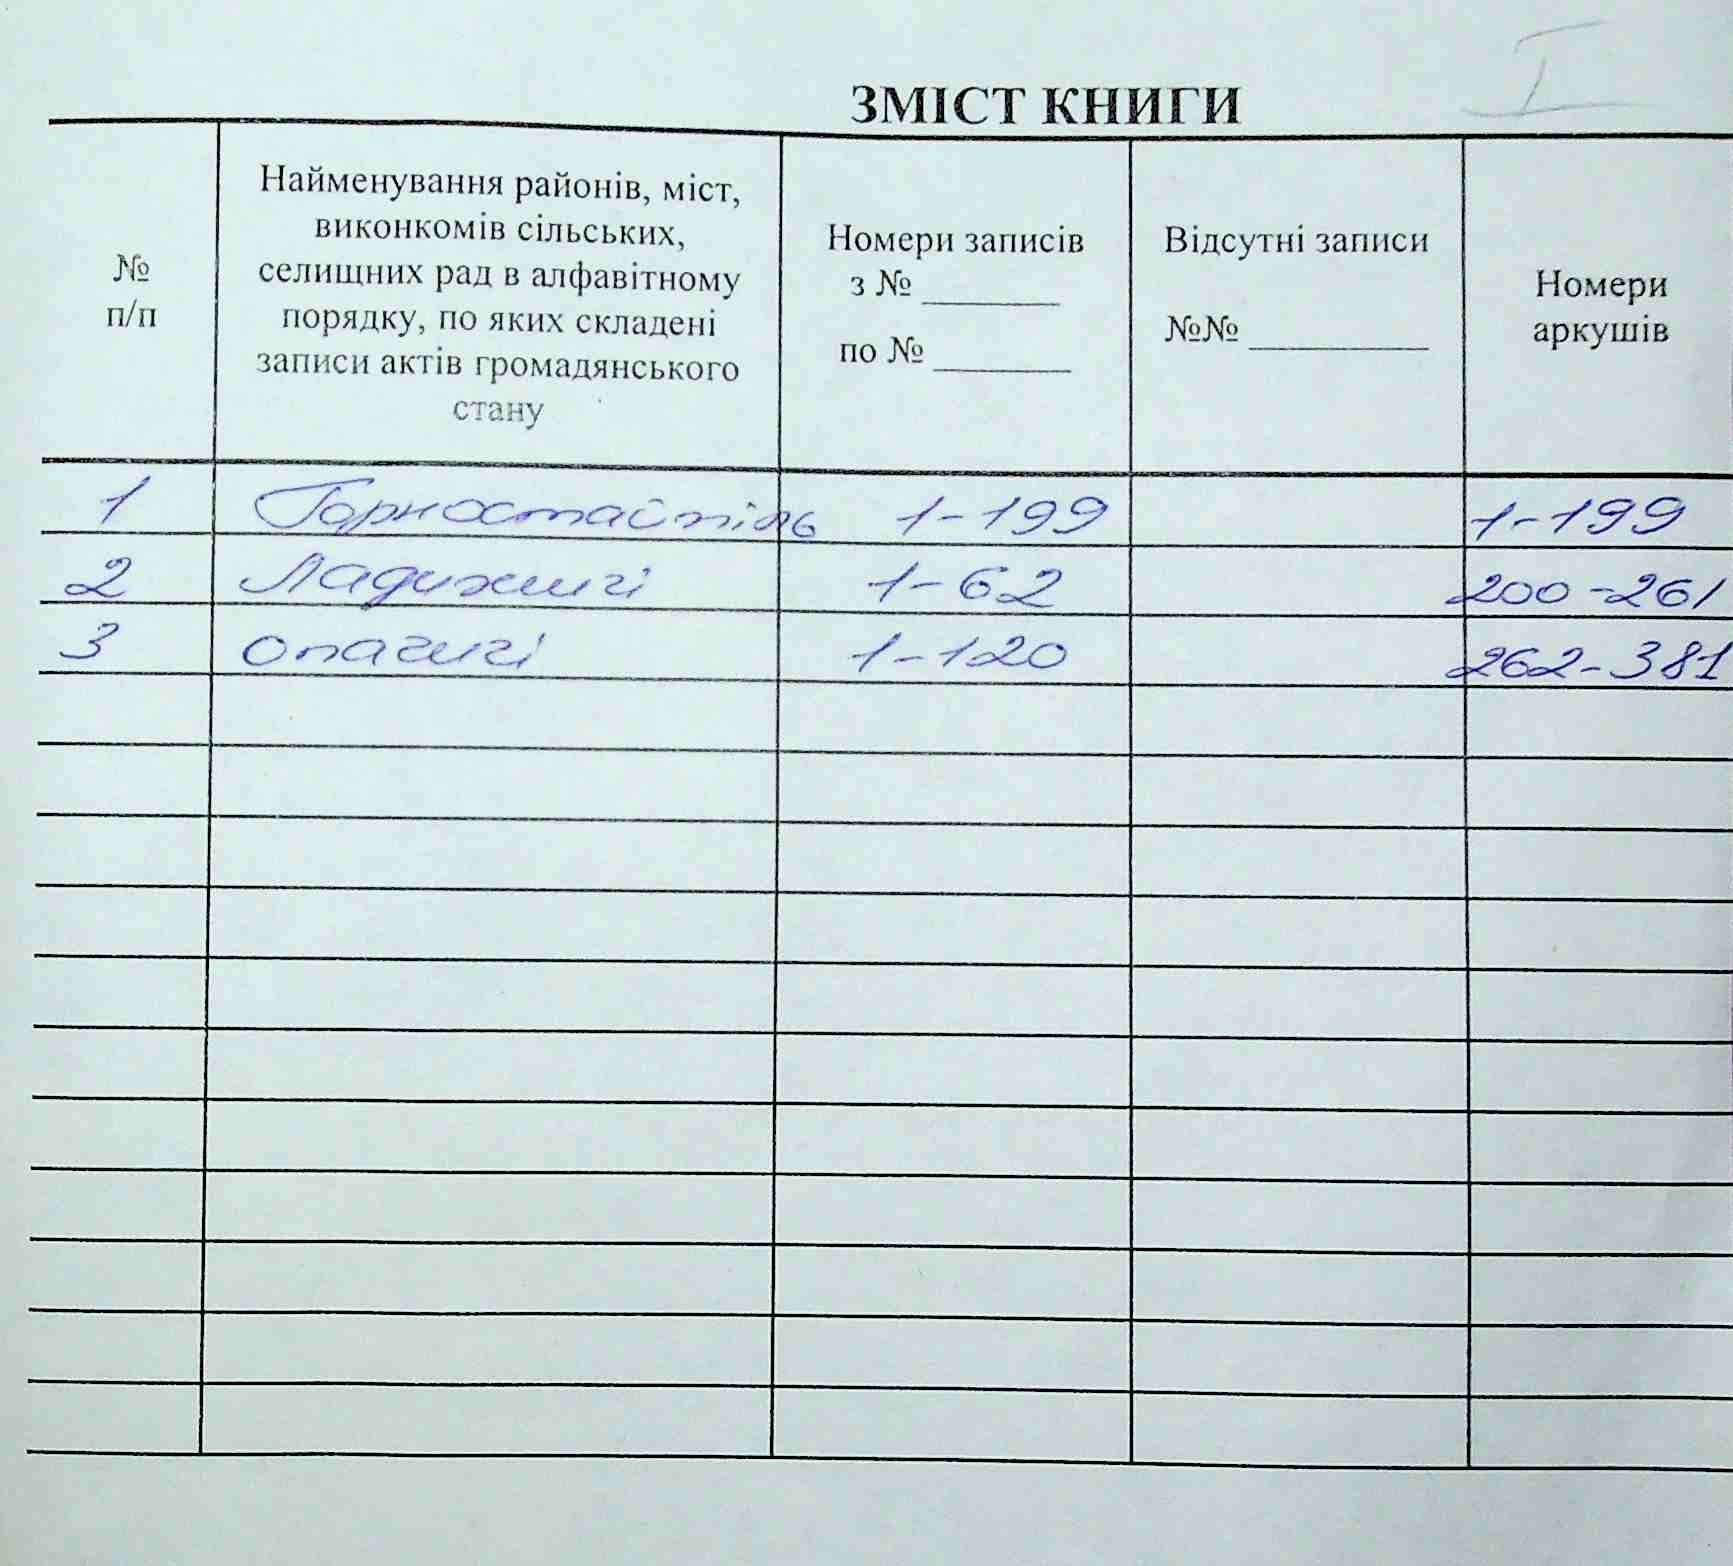 I
ЗМІСТ КНИГИ
№
п/п
Найменування районів, міст,
виконкомів сільських,
селищних рад в алфавітному
порядку, по яких складені
записи актів громадянського
стану
Номери записів
з № ________
по № ________
Відсутні записи
№№ __________
Номери
аркушів
1 Горностайпіль 1-199 1-199
2 Ладижичі 1-62 200-261
3 Опачичі 1-120 262-381